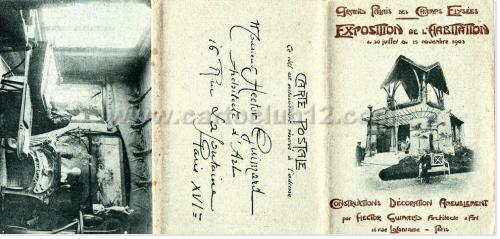 GRAND PALAIS DES CHAMPS ELYSÉES
EXPOSITION DE L'HABITATION
du 30 juillet au 15 novembre 1903
CONSTRUCTIONS DÉCORATION AMEUBLEMENT
par HECTOR GUIMARD Architecte d'Art
16 rue Lafontaine — Paris
CARTE POSTALE
Ce côté est exclusivement réservé à l'adresse
Monsieur Hector Guimard
Architecte d'Art
16 Rue La Fontaine
Paris XVIe
www.cartoclub12.com